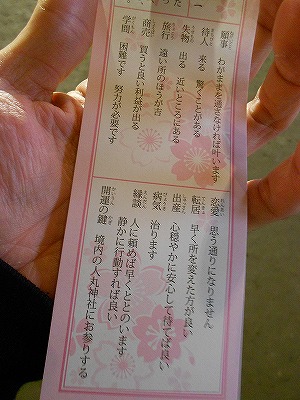 願事 わがままを通さなければ叶います
待人 来る 驚くことがある
失物 出る 近いところにある
旅行 遠い所のほうが吉
商売 買うと良い利益が出る
学問 困難です 努力が必要です
恋愛 思う通りになりません
転居 早く所を変えた方が良い
出産 心穏やかに安心して待てば良い
病気 治ります
縁談 人に頼めば早くととのいます
静かに行動すれば良い
開運の鍵 境内の人丸神社にお参りする